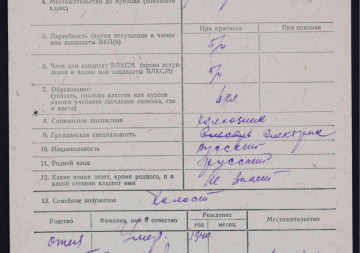 4. Местожительство до призыва (домашний адрес)
При приписке
При призыве
5. Партийность (время вступления в члены или кандидаты ВКП(б)
б/п
6. Член или кандидат ВЛКСМ (время вступления в члены или кандидаты ВЛКСМ)
б/п
7. Образование: (указать, сколько классов или курсов какого учебного заведения окончил, где и когда)
8. Социальное положение
Колхозник
9. Гражданская специальность
Слесарь электрик
10. Национальность
Русский
11. Родной язык
Русский
12. Какие языки знает, кроме родного, и в какой степени владеет ими
Не знает
13. Семейное положение
Холост
Родство
Фамилия, имя и отчество
Рождение
год
месяц
Местожительство
отец
Умер.